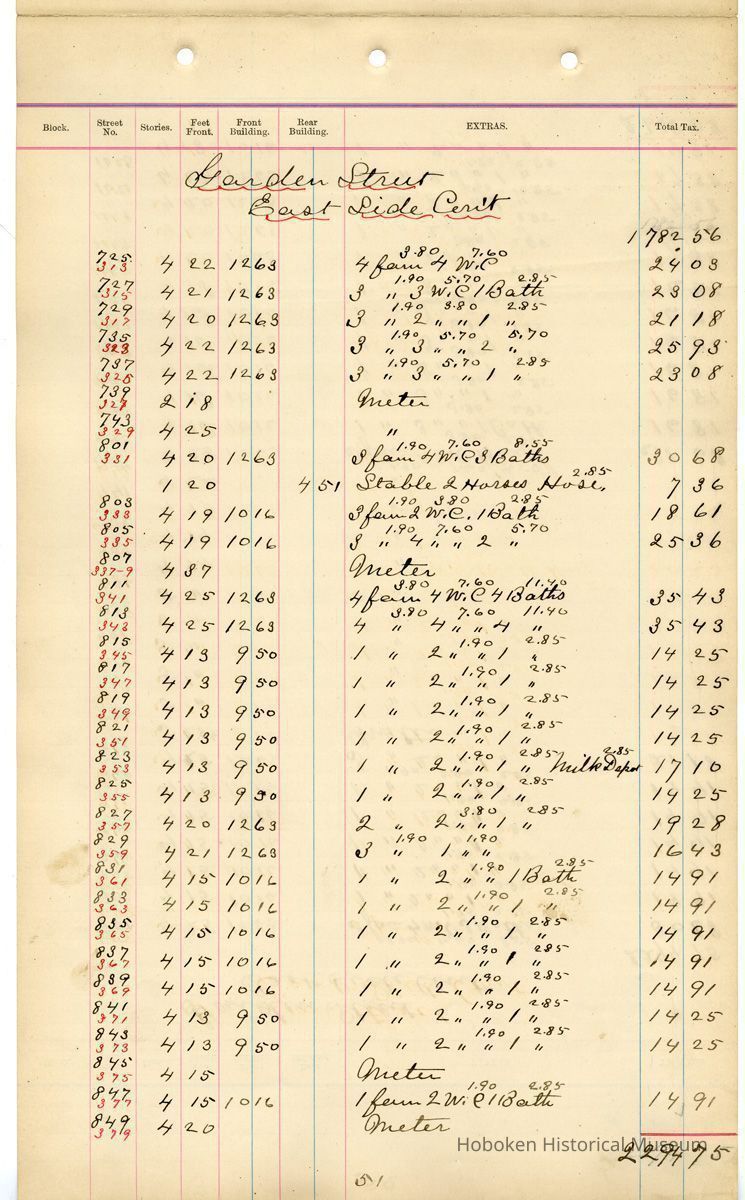 Block. Street No. Stories. Feet Front. Front Building. Rear Building. EXTRAS. Total Tax.
Garden Street
East Side Con't
1782 56
725 313 4 22 1263 4 fam 4 W.C 3.80 7.60 24 03
727 315 4 21 1263 3 " 3 W.C 1 Bath 1.90 5.70 2.85 23 08
729 317 4 20 1263 3 " 2 " " 1 " 1.90 3.80 2.85 21 18
735 323 4 22 1263 3 " 3 " " 2 " 1.90 5.70 5.70 25 93
737 325 4 22 1263 3 " 3 " " 1 " 1.90 5.70 2.85 23 08
739 327 2 18 Meter
743 329 4 25 "
801 331 4 20 1263 3 fam 4 W.C 3 Baths 1.90 7.60 8.55 30 68
1 20 4 51 Stable 2 Horses Hose, 2.85 7 36
803 333 4 19 1016 3 fam 2 W.C. 1 Bath 1.90 3.80 2.85 18 61
805 335 4 19 1016 3 " 4 " " 2 " 1.90 7.60 5.70 25 36
807 337-9 4 37 Meter
811 341 4 25 1263 4 fam 4 W.C 4 Baths 3.80 7.60 11.40 35 43
813 343 4 25 1263 4 " 4 " " 4 " 3.80 7.60 11.40 35 43
815 345 4 13 9 50 1 " 2 " " 1 " 1.90 2.85 14 25
817 347 4 13 9 50 1 " 2 " " 1 " 1.90 2.85 14 25
819 349 4 13 9 50 1 " 2 " " 1 " 1.90 2.85 14 25
821 351 4 13 9 50 1 " 2 " " 1 " 1.90 2.85 14 25
823 353 4 13 9 50 1 " 2 " " 1 " Milk Depot 1.90 2.85 2.85 17 10
825 355 4 13 9 50 1 " 2 " " 1 " 1.90 2.85 14 25
827 357 4 20 1263 2 " 2 " " 1 " 3.80 2.85 19 28
829 359 4 21 1263 3 " 1 " " 1.90 1.90 16 43
831 361 4 15 1016 1 " 2 " " 1 Bath 1.90 2.85 14 91
833 363 4 15 1016 1 " 2 " " 1 " 1.90 2.85 14 91
835 365 4 15 1016 1 " 2 " " 1 " 1.90 2.85 14 91
837 367 4 15 1016 1 " 2 " " 1 " 1.90 2.85 14 91
839 369 4 15 1016 1 " 2 " " 1 " 1.90 2.85 14 91
841 371 4 13 9 50 1 " 2 " " 1 " 1.90 2.85 14 25
843 373 4 13 9 50 1 " 2 " " 1 " 1.90 2.85 14 25
845 375 4 15 Meter
847 377 4 15 1016 1 fam 2 W.C 1 Bath 1.90 2.85 14 91
849 379 4 20 Meter
Hoboken Historical Museum
2294 75
51